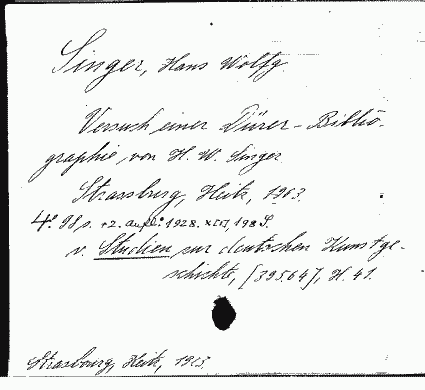 Singer, Hans Wolfg.
Versuch einer Dürer-Biblio-
graphie, von H. W. Singer.
Strassburg, Heitz, 1903.
4° 98 s. +2. Aufl. 1928. 198 S.
v. Studien zur deutschen Kunstge-
schichte, [395.64], H. 41.
Strasbourg, Heitz, 1903.